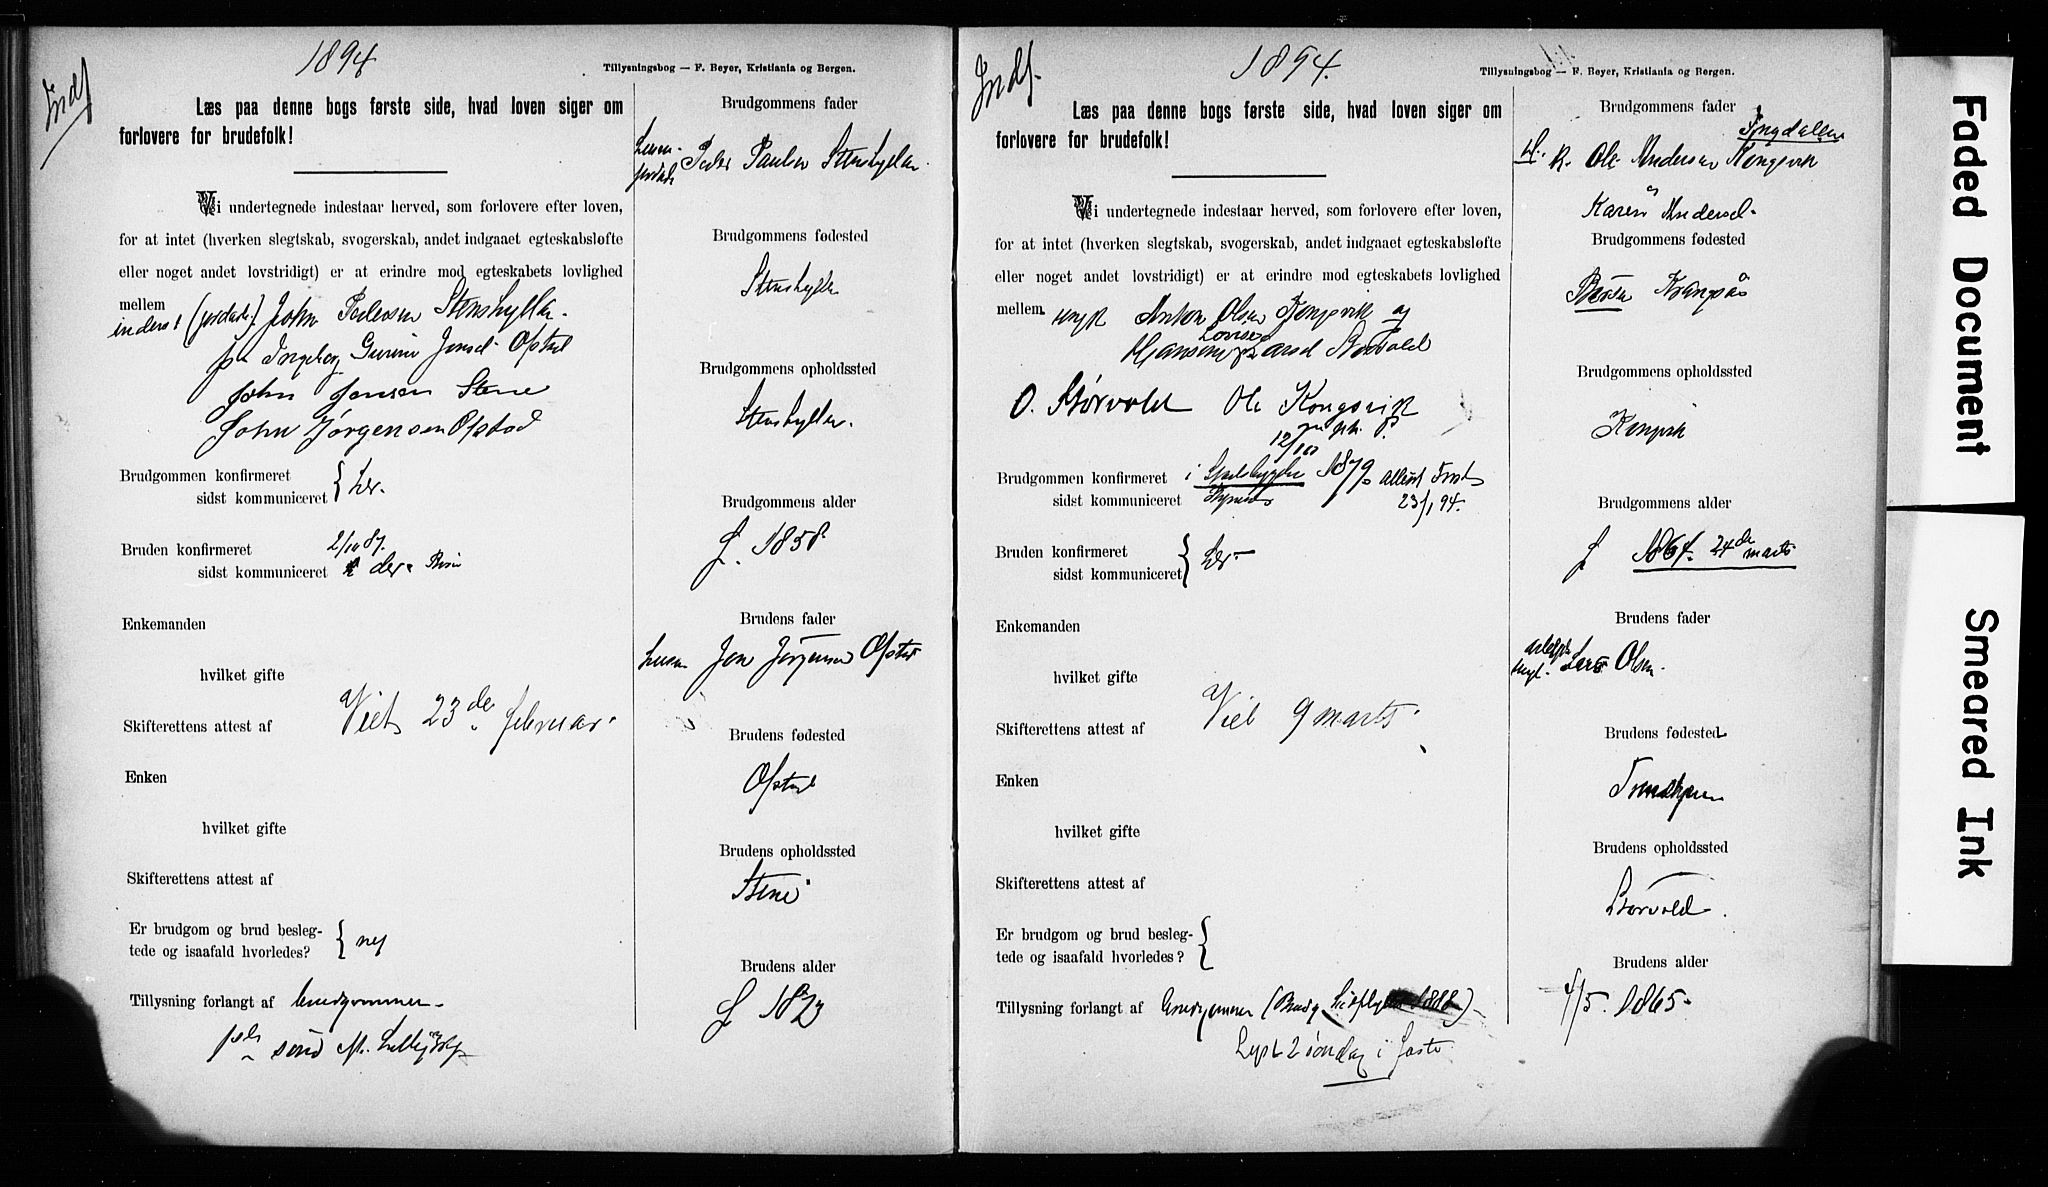 1894
Indf
Tillysningsbog — F. Beyer, Kristiania og Bergen.
Læs paa denne bogs første side, hvad loven siger om
forlovere for brudefolk!
Vi undertegnede indestaar herved, som forlovere efter loven,
for at intet (hverken slegtskab, svogerskab, andet indgaaet egteskabsløfte
eller noget andet lovstridigt) er at erindre mod egteskabets lovlighed
mellem
inderst (jordarb.) John Pedersen Stenshyllen
Ingeborg Gurine Jonsd. Ofstad
John Jonsen Stene
John Jørgensen Ofstad
Brudgommen konfirmeret
sidst kommuniceret } her.
Bruden konfirmeret 2/10 87.
sidst kommuniceret
Enkemanden
hvilket gifte
Skifterettens attest af
Viet 23de februar
Enken
hvilket gifte
Skifterettens attest af
Er brudgom og brud besleg-
tede og isaafald hvorledes? } nej
Tillysning forlangt af brudgommen
Brudgommens fader
Peder Paulsen Stenshyllen
Brudgommens fødested
Stenshyllen
Brudgommens opholdssted
Stenshyllen.
Brudgommens alder
f. 1858
Brudens fader
Jon Jørgensen Ofstad
Brudens fødested
Ofstad
Brudens opholdssted
Stene
Brudens alder
f 1873
1894.
Indf.
Tillysningsbog — F. Beyer, Kristiania og Bergen.
Læs paa denne bogs første side, hvad loven siger om
forlovere for brudefolk!
Vi undertegnede indestaar herved, som forlovere efter loven,
for at intet (hverken slegtskab, svogerskab, andet indgaaet egteskabsløfte
eller noget andet lovstridigt) er at erindre mod egteskabets lovlighed
mellem ungk Anton Olsen Kongsvik og
Lovise
Larsd Størvold
O. Størvold Ole Kongsvik
12/10
Brudgommen konfirmeret i 1879
sidst kommuniceret 23/1 94.
Bruden konfirmeret
sidst kommuniceret } her
Enkemanden
hvilket gifte
Skifterettens attest af
Viet 9 marts
Enken
hvilket gifte
Skifterettens attest af
Er brudgom og brud besleg-
tede og isaafald hvorledes? }
Tillysning forlangt af brudgommen
Lyst 2 søndag i faste
Brudgommens fader
Ole Andersen Kongsvik
Karen Andersd.
Brudgommens fødested
Brudgommens opholdssted
Kongsvik
Brudgommens alder
f 1864. 24de marts
Brudens fader
Lars Olsen.
Brudens fødested
Trondhjem
Brudens opholdssted
Størvold.
Brudens alder
4/5. 1865.
Faded Document
Smeared Ink